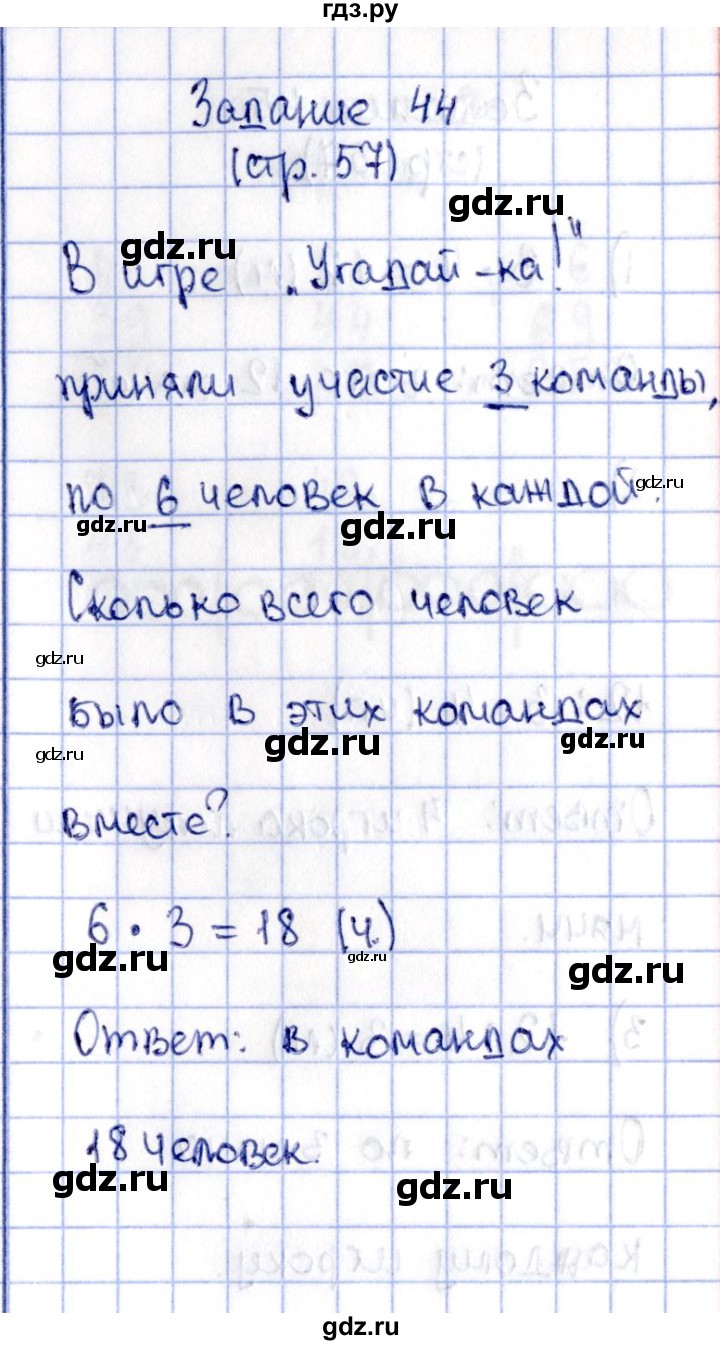 гдз.ру
Задание 44
(стр. 57)
gdz.ru
gdz.ru
В игре „Угадай-ка!"
приняли участие 3 команды,
по 6 человек в каждой.
gdz.ru
gdz.ru
gdz.ru
Сколько всего человек
gdz.ru
было в этих командах
gdz.ru
gdz.ru
gdz.ru
вместе?
6 · 3 = 18 (ч.)
gdz.ru
gdz.ru
gdz.ru
Ответ: в командах
18 человек.
gdz.ru
gdz.ru
gdz.ru